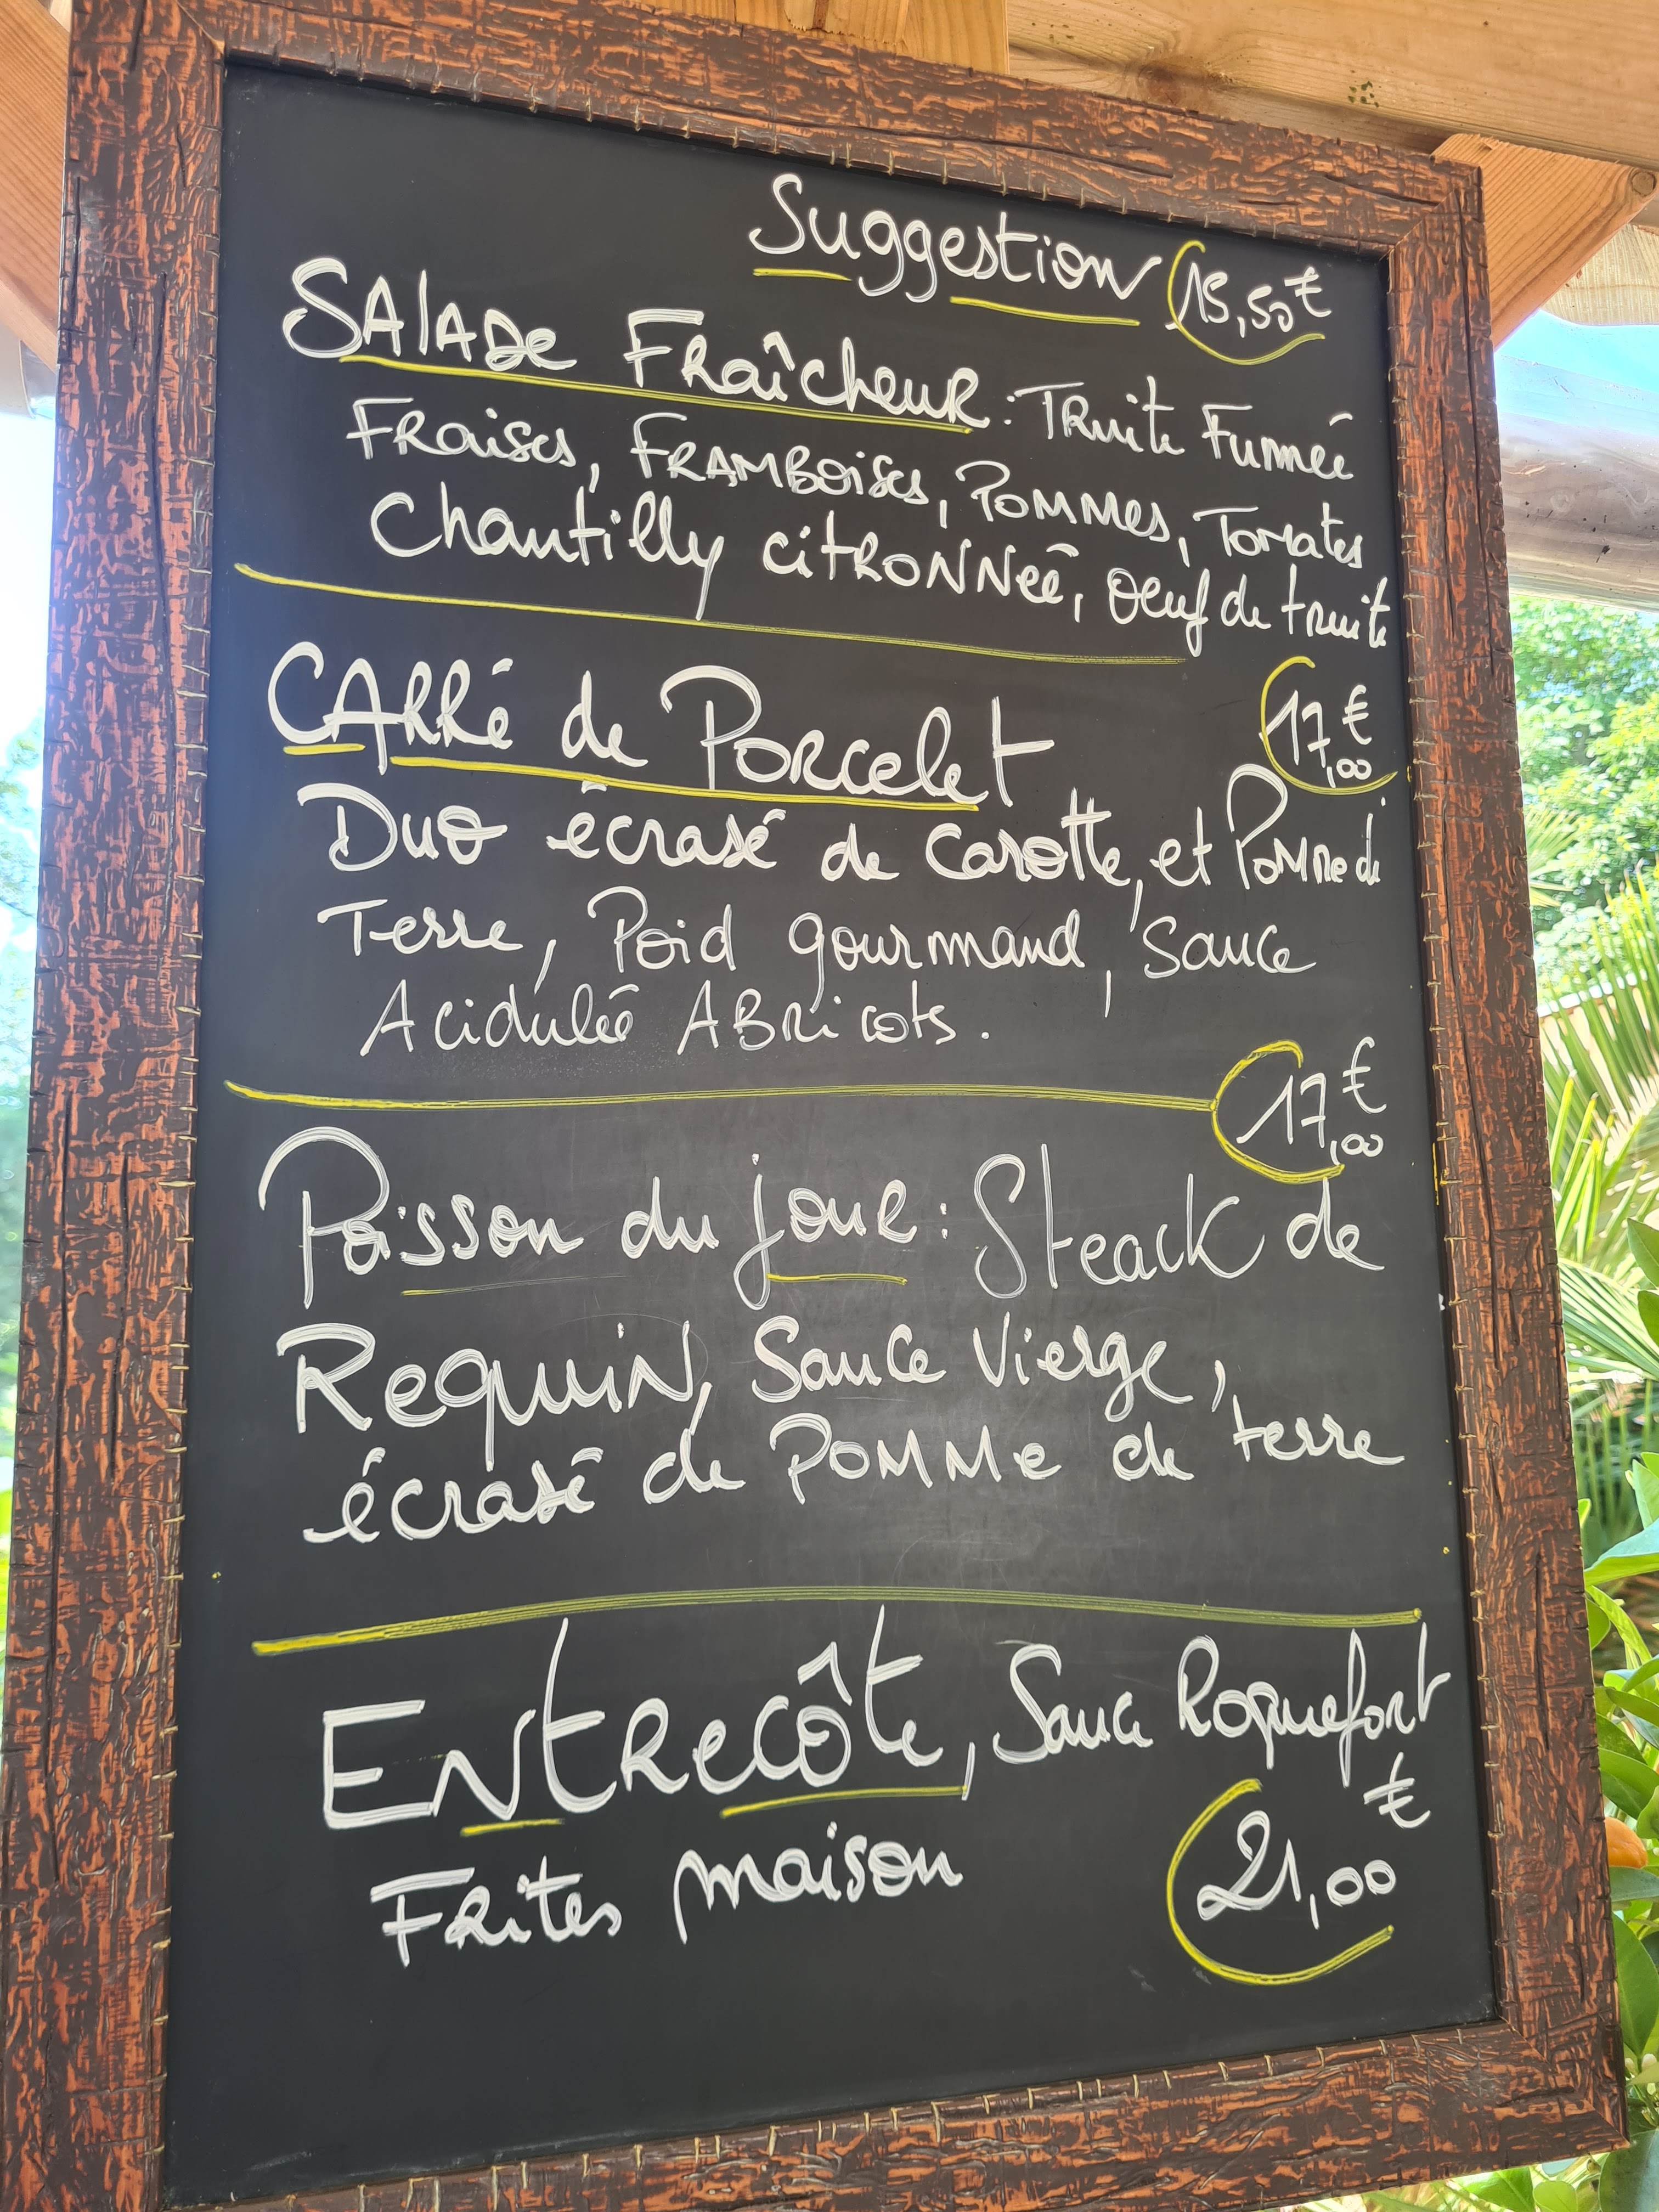 Suggestion 15,50€
SALADe FRaîcheuR : TRuite Fumée
FRaises, FRAMBoises, POMMes, Tomates
Chantilly citRONNée, oeuf de truite
CARRé de PORcelet 17,00€
Duo écrasé de Carotte, et POMMe de
Terre, Poid gourmand, Sauce
Acidulée ABRicots.
17,00€
Poisson du jouR : Steack de
RequiN, Sauce Vierge,
écrasé de POMMe de terre
ENtRecôte, Sauce Roquefort
FRites maison 21,00€